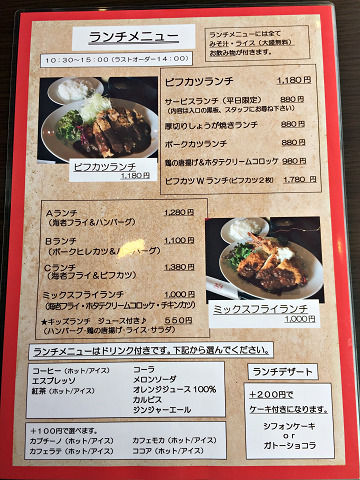 ランチメニュー
10:30~15:00(ラストオーダー14:00)
ランチメニューには全て
みそ汁・ライス(大盛無料)
お飲み物が付きます。
ビフカツランチ 1,180円
サービスランチ(平日限定) 880円
(内容は入口の黒板、スタッフにお尋ね下さい)
厚切りしょうが焼きランチ 880円
ポークカツランチ 880円
鶏の唐揚げ&ホタテクリームコロッケ 980円
ビフカツWランチ(ビフカツ2枚) 1,780円
ビフカツランチ
1,180円
Aランチ 1,280円
(海老フライ&ハンバーグ)
Bランチ 1,100円
(ポークヒレカツ&ハンバーグ)
Cランチ 1,380円
(海老フライ&ビフカツ)
ミックスフライランチ 1,000円
(海老フライ・ホタテクリームコロッケ・チキンカツ)
★キッズランチ ジュース付き♪ 550円
(ハンバーグ・鶏の唐揚げ・ライス・サラダ)
ミックスフライランチ
1,000円
ランチメニューはドリンク付きです。下記から選んでください。
コーヒー(ホット/アイス)
エスプレッソ
紅茶(ホット/アイス)
コーラ
メロンソーダ
オレンジジュース100%
カルピス
ジンジャーエール
+100円で選べます。
カプチーノ(ホット/アイス) カフェモカ(ホット/アイス)
カフェラテ(ホット/アイス) ココア(ホット/アイス)
ランチデザート
+200円で
ケーキ付きになります。
シフォンケーキ
or
ガトーショコラ